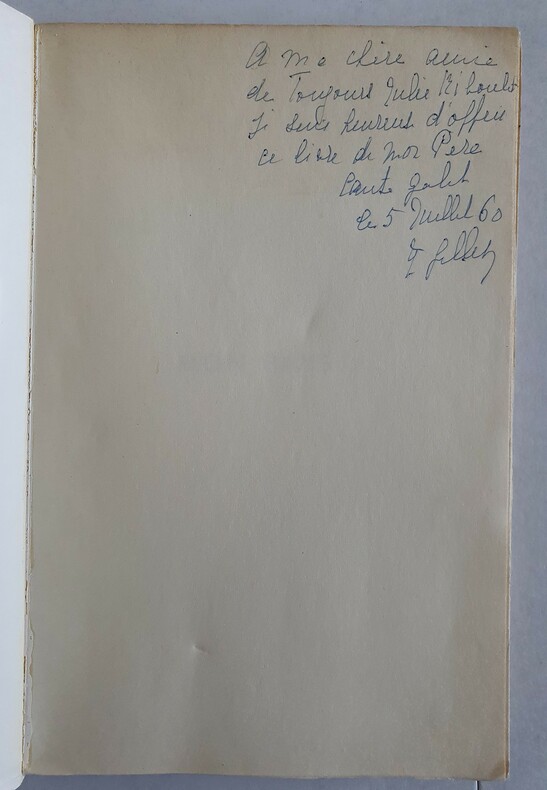 A ma chère amie
de Toujours Julie
Je suis heureux d'offrir
ce livre de mon Père
le 5 Juillet 60